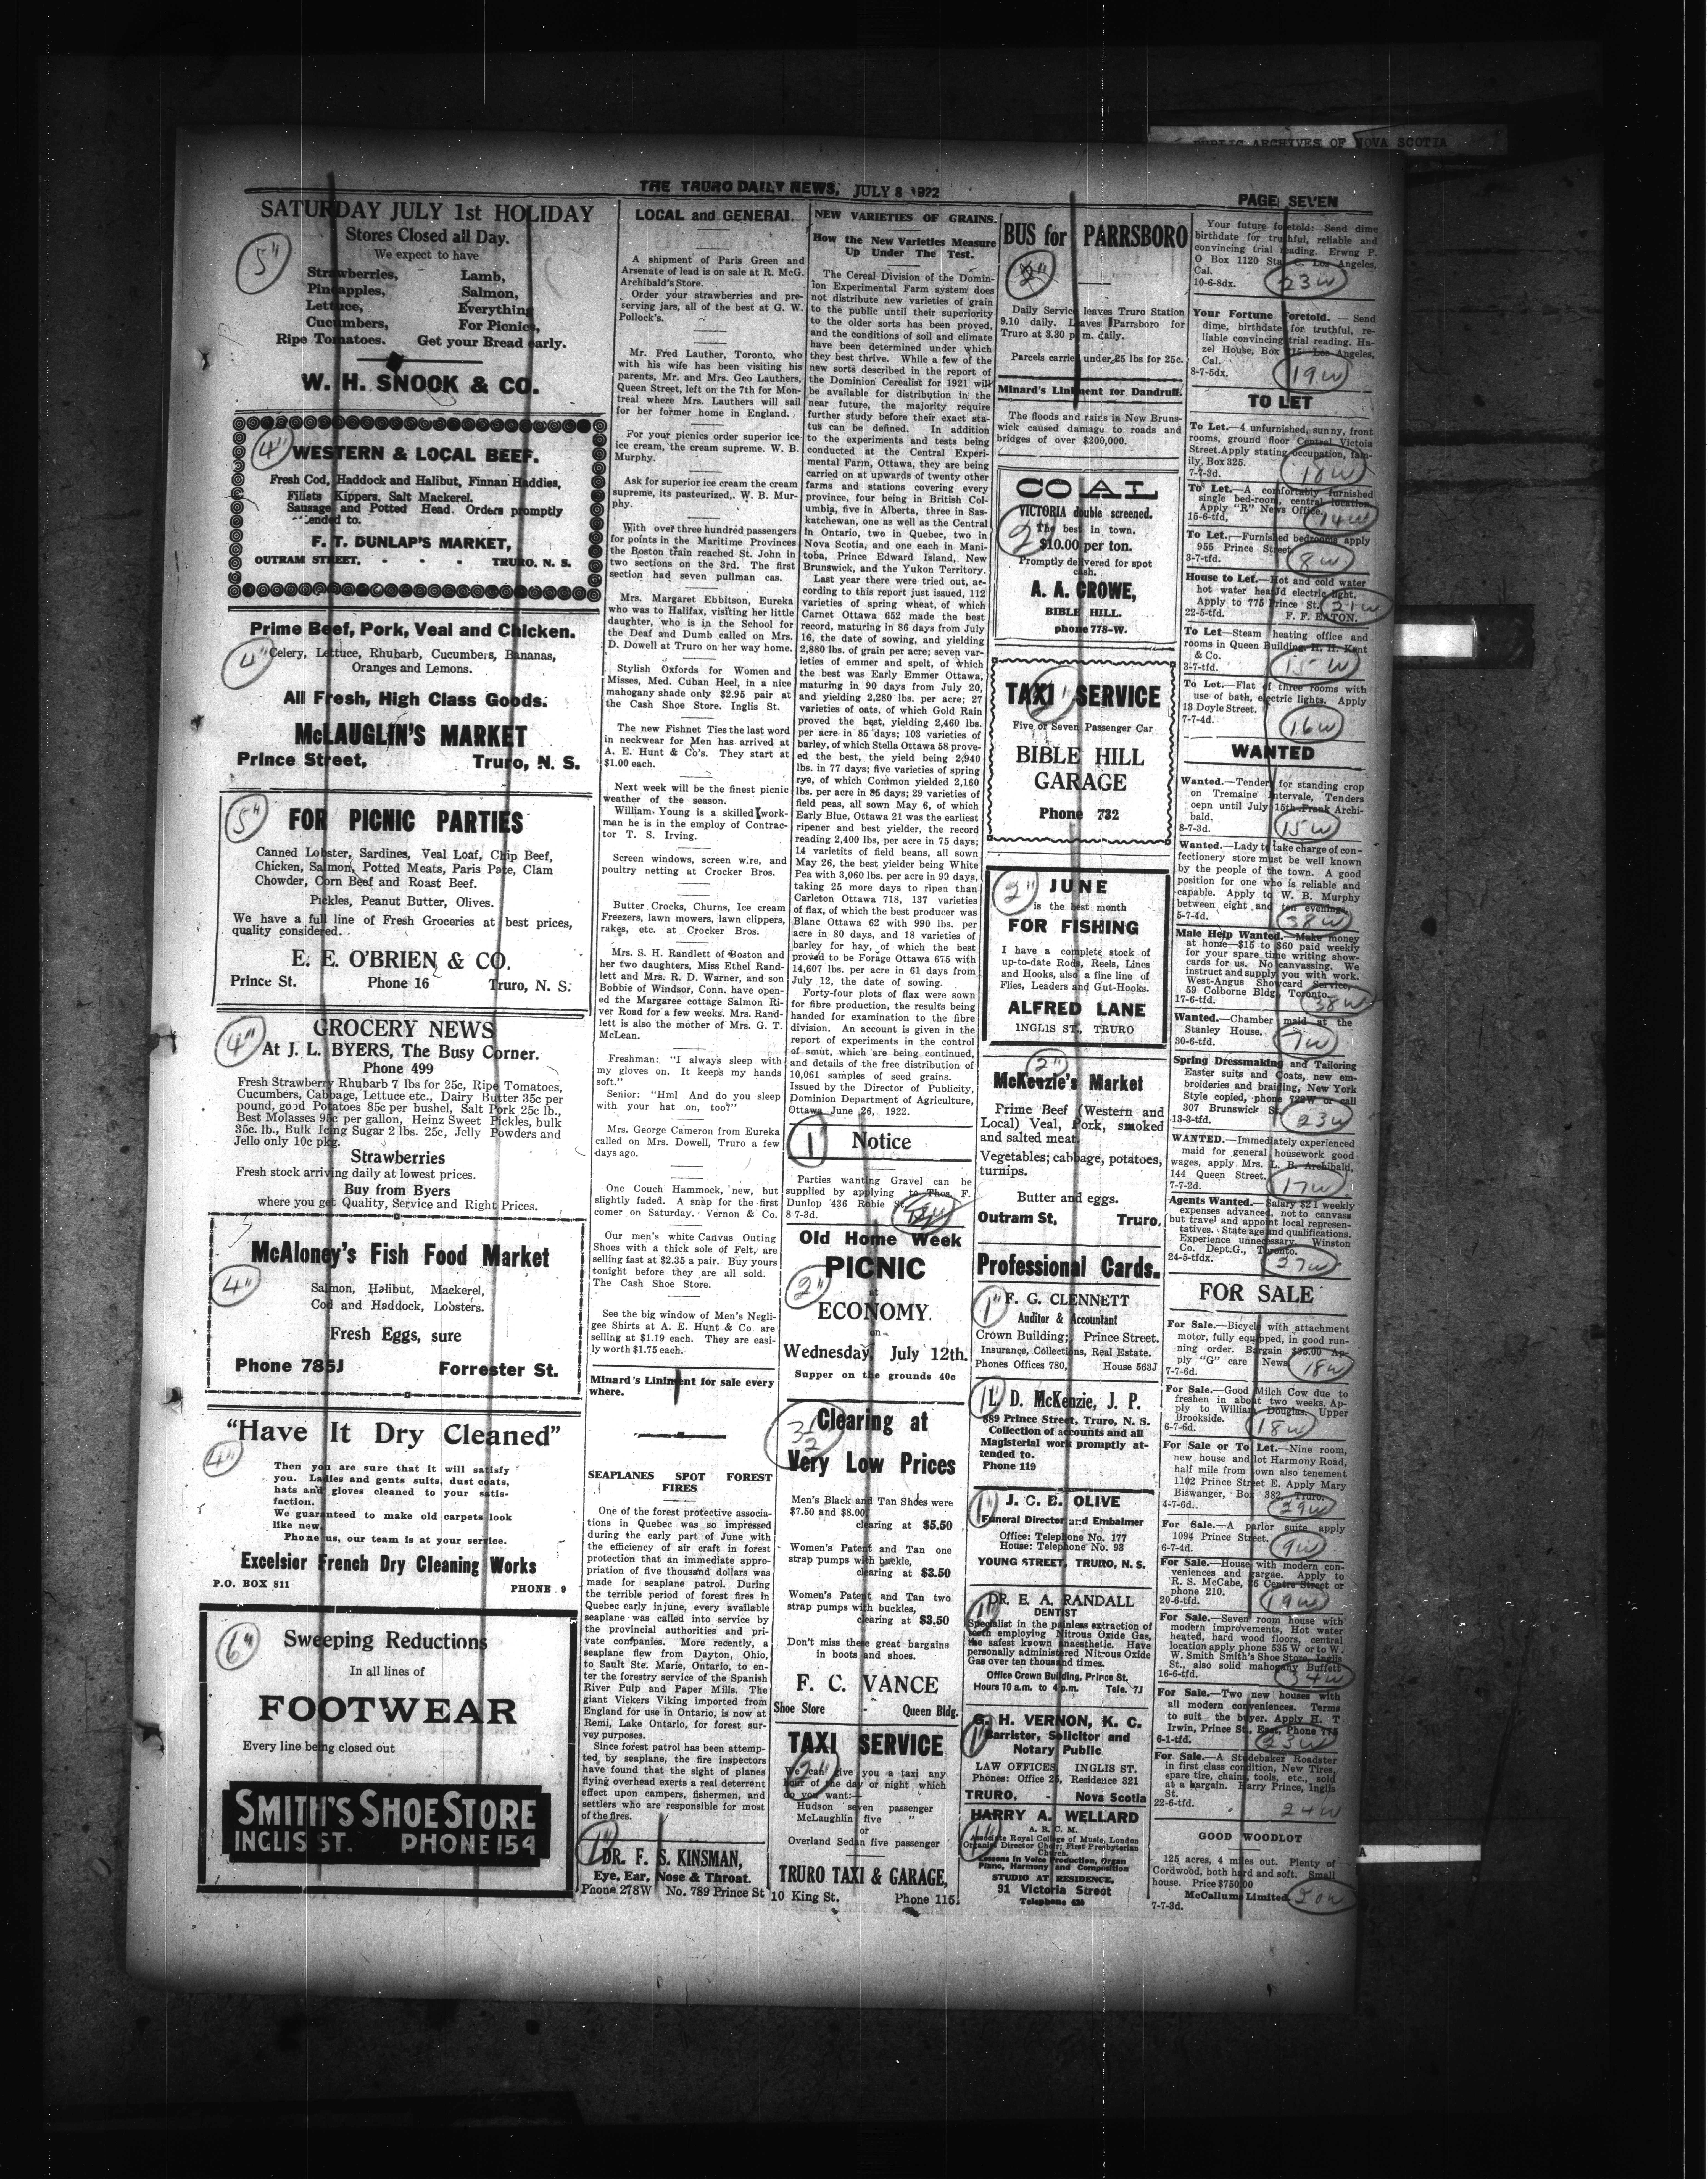 PUBLIC ARCHIVES OF NOVA SCOTIA
THE TRURO DAILY NEWS, JULY 8 1922
PAGE SEVEN
SATURDAY JULY 1st HOLIDAY
Stores Closed all Day.
We expect to have
Strawberries, Lamb,
Pineapples, Salmon,
Lettuce, Everything
Cucumbers, For Picnics,
Ripe Tomatoes. Get your Bread early.
W. H. SNOOK & CO.
5"
4"
WESTERN & LOCAL BEEF.
Fresh Cod, Haddock and Halibut, Finnan Haddies,
Fillets Kippers, Salt Mackerel.
Sausage and Potted Head. Orders promptly
tended to.
F. T. DUNLAP'S MARKET,
OUTRAM STREET, - - - TRURO, N. S.
Prime Beef, Pork, Veal and Chicken.
4"
Celery, Lettuce, Rhubarb, Cucumbers, Bananas,
Oranges and Lemons.
All Fresh, High Class Goods.
McLAUGLIN'S MARKET
Prince Street, Truro, N. S.
5"
FOR PICNIC PARTIES
Canned Lobster, Sardines, Veal Loaf, Chip Beef,
Chicken, Salmon, Potted Meats, Paris Pate, Clam
Chowder, Corn Beef and Roast Beef.
Pickles, Peanut Butter, Olives.
We have a full line of Fresh Groceries at best prices,
quality considered.
E. E. O'BRIEN & CO.
Prince St. Phone 16 Truro, N. S.
4"
GROCERY NEWS
At J. L. BYERS, The Busy Corner.
Phone 499
Fresh Strawberry Rhubarb 7 lbs for 25c, Ripe Tomatoes,
Cucumbers, Cabbage, Lettuce etc., Dairy Butter 35c per
pound, good Potatoes 85c per bushel, Salt Pork 25c lb.,
Best Molasses 95c per gallon, Heinz Sweet Pickles, bulk
35c. lb., Bulk Icing Sugar 2 lbs. 25c, Jelly Powders and
Jello only 10c pkg.
Strawberries
Fresh stock arriving daily at lowest prices.
Buy from Byers
where you get Quality, Service and Right Prices.
McAloney's Fish Food Market
4"
Salmon, Halibut, Mackerel,
Cod and Haddock, Lobsters.
Fresh Eggs, sure
Phone 785J Forrester St.
"Have It Dry Cleaned"
4"
Then you are sure that it will satisfy
you. Ladies and gents suits, dust coats,
hats and gloves cleaned to your satis-
faction.
We guaranteed to make old carpets look
like new.
Phone us, our team is at your service.
Excelsior French Dry Cleaning Works
P.O. BOX 811 PHONE 9
6"
Sweeping Reductions
In all lines of
FOOTWEAR
Every line being closed out
SMITH'S SHOE STORE
INGLIS ST. PHONE 154
LOCAL and GENERAL.
A shipment of Paris Green and
Arsenate of lead is on sale at R. McG.
Archibald's Store.
Order your strawberries and pre-
serving jars, all of the best at G. W.
Pollock's.
Mr. Fred Lauther, Toronto, who
with his wife has been visiting his
parents, Mr. and Mrs. Geo Lauthers,
Queen Street, left on the 7th for Mon-
treal where Mrs. Lauthers will sail
for her former home in England.
For your picnics order superior ice
ice cream, the cream supreme. W. B.
Murphy.
Ask for superior ice cream the cream
supreme, its pasteurized. W. B. Mur-
phy.
With over three hundred passengers
for points in the Maritime Provinces
the Boston train reached St. John in
two sections on the 3rd. The first
section had seven pullman cas.
Mrs. Margaret Ebbitson, Eureka
who was to Halifax, visiting her little
daughter, who is in the School for
the Deaf and Dumb called on Mrs.
D. Dowell at Truro on her way home.
Stylish Oxfords for Women and
Misses, Med. Cuban Heel, in a nice
mahogany shade only $2.95 pair at
the Cash Shoe Store. Inglis St.
The new Fishnet Ties the last word
in neckwear for Men has arrived at
A. E. Hunt & Co's. They start at
$1.00 each.
Next week will be the finest picnic
weather of the season.
William Young is a skilled work-
man he is in the employ of Contrac-
tor T. S. Irving.
Screen windows, screen wire, and
poultry netting at Crocker Bros.
Butter Crocks, Churns, Ice cream
Freezers, lawn mowers, lawn clippers,
rakes, etc. at Crocker Bros.
Mrs. S. H. Randlett of Boston and
her two daughters, Miss Ethel Rand-
lett and Mrs. R. D. Warner, and son
Bobbie of Windsor, Conn. have open-
ed the Margaree cottage Salmon Ri-
ver Road for a few weeks. Mrs. Rand-
lett is also the mother of Mrs. G. T.
McLean.
Freshman: "I always sleep with
my gloves on. It keeps my hands
soft."
Senior: "Hm! And do you sleep
with your hat on, too?"
Mrs. George Cameron from Eureka
called on Mrs. Dowell, Truro a few
days ago.
One Couch Hammock, new, but
slightly faded. A snap for the first
comer on Saturday. Vernon & Co.
Our men's white Canvas Outing
Shoes with a thick sole of Felt, are
selling fast at $2.35 a pair. Buy yours
tonight before they are all sold.
The Cash Shoe Store.
See the big window of Men's Negli-
gee Shirts at A. E. Hunt & Co. are
selling at $1.19 each. They are easi-
ly worth $1.75 each.
Minard's Liniment for sale every
where.
SEAPLANES SPOT FOREST
FIRES
One of the forest protective associa-
tions in Quebec was so impressed
during the early part of June with
the efficiency of air craft in forest
protection that an immediate appro-
priation of five thousand dollars was
made for seaplane patrol. During
the terrible period of forest fires in
Quebec early in june, every available
seaplane was called into service by
the provincial authorities and pri-
vate companies. More recently, a
seaplane flew from Dayton, Ohio,
to Sault Ste. Marie, Ontario, to en-
ter the forestry service of the Spanish
River Pulp and Paper Mills. The
giant Vickers Viking imported from
England for use in Ontario, is now at
Remi, Lake Ontario, for forest sur-
vey purposes.
Since forest patrol has been attemp-
ted by seaplane, the fire inspectors
have found that the sight of planes
flying overhead exerts a real deterrent
effect upon campers, fishermen, and
settlers who are responsible for most
of the fires.
1"
DR. F. S. KINSMAN,
Eye, Ear, Nose & Throat.
Phone 278W No. 789 Prince St
NEW VARIETIES OF GRAINS.
How the New Varieties Measure
Up Under The Test.
The Cereal Division of the Domin-
ion Experimental Farm system does
not distribute new varieties of grain
to the public until their superiority
to the older sorts has been proved,
and the conditions of soil and climate
have been determined under which
they best thrive. While a few of the
new sorts described in the report of
the Dominion Cerealist for 1921 will
be available for distribution in the
near future, the majority require
further study before their exact sta-
tus can be defined. In addition
to the experiments and tests being
conducted at the Central Experi-
mental Farm, Ottawa, they are being
carried on at upwards of twenty other
farms and stations covering every
province, four being in British Col-
umbia, five in Alberta, three in Sas-
katchewan, one as well as the Central
in Ontario, two in Quebec, two in
Nova Scotia, and one each in Mani-
toba, Prince Edward Island, New
Brunswick, and the Yukon Territory.
Last year there were tried out, ac-
cording to this report just issued, 112
varieties of spring wheat, of which
Carnet Ottawa 652 made the best
record, maturing in 86 days from July
16, the date of sowing, and yielding
2,880 lbs. of grain per acre; seven var-
ieties of emmer and spelt, of which
the best was Early Emmer Ottawa,
maturing in 90 days from July 20,
and yielding 2,280 lbs. per acre; 27
varieties of oats, of which Gold Rain
proved the best, yielding 2,460 lbs.
per acre in 85 days; 103 varieties of
barley, of which Stella Ottawa 58 prove-
ed the best, the yield being 2,940
lbs. in 77 days; five varieties of spring
rye, of which Common yielded 2,160
lbs. per acre in 85 days; 29 varieties of
field peas, all sown May 6, of which
Early Blue, Ottawa 21 was the earliest
ripener and best yielder, the record
reading 2,400 lbs, per acre in 75 days;
14 varietits of field beans, all sown
May 26, the best yielder being White
Pea with 3,060 lbs. per acre in 99 days,
taking 25 more days to ripen than
Carleton Ottawa 718, 137 varieties
of flax, of which the best producer was
Blanc Ottawa 62 with 990 lbs. per
acre in 80 days, and 18 varieties of
barley for hay, of which the best
proved to be Forage Ottawa 675 with
14,607 lbs. per acre in 61 days from
July 12, the date of sowing.
Forty-four plots of flax were sown
for fibre production, the results being
handed for examination to the fibre
division. An account is given in the
report of experiments in the control
of smut, which are being continued,
and details of the free distribution of
10,061 samples of seed grains.
Issued by the Director of Publicity,
Dominion Department of Agriculture,
Ottawa June 26, 1922.
1
Notice
Parties wanting Gravel can be
supplied by applying to Thos. F.
Dunlop 436 Robie St.
8 7-3d.
Old Home Week
PICNIC
2"
at
ECONOMY.
on
Wednesday July 12th.
Supper on the grounds 40c
3 1/2
Clearing at
Very Low Prices
Men's Black and Tan Shoes were
$7.50 and $8.00
clearing at $5.50
Women's Patent and Tan one
strap pumps with buckle,
clearing at $3.50
Women's Patent and Tan two
strap pumps with buckles,
clearing at $3.50
Don't miss these great bargains
in boots and shoes.
F. C. VANCE
Shoe Store - Queen Bldg.
TAXI SERVICE
2"
We can give you a taxi any
hour of the day or night which
do you want:—
Hudson seven passenger
McLaughlin five "
or
Overland Sedan five passenger
TRURO TAXI & GARAGE,
10 King St. Phone 115.
BUS for PARRSBORO
2"
Daily Service leaves Truro Station
9.10 daily. Leaves Parrsboro for
Truro at 3.30 p m. daily.
Parcels carried under 25 lbs for 25c.
Minard's Liniment for Dandruff.
The floods and rains in New Bruns-
wick caused damage to roads and
bridges of over $200,000.
COAL
VICTORIA double screened.
2"
The best in town.
$10.00 per ton.
Promptly delivered for spot
cash.
A. A. CROWE,
BIBLE HILL.
phone 778-W.
TAXI SERVICE
2"
Five or Seven Passenger Car
BIBLE HILL
GARAGE
Phone 732
2"
JUNE
is the best month
FOR FISHING
I have a complete stock of
up-to-date Rods, Reels, Lines
and Hooks, also a fine line of
Flies, Leaders and Gut-Hooks.
ALFRED LANE
INGLIS ST., TRURO
2"
McKenzie's Market
Prime Beef (Western and
Local) Veal, Pork, smoked
and salted meat.
Vegetables; cabbage, potatoes,
turnips.
Butter and eggs.
Outram St, Truro.
Professional Cards.
1"
F. G. CLENNETT
Auditor & Accountant
Crown Building; Prince Street.
Insurance, Collections, Real Estate.
Phones Offices 780, House 563J
1"
L. D. McKenzie, J. P.
889 Prince Street, Truro, N. S.
Collection of accounts and all
Magisterial work promptly at-
tended to.
Phone 119
1"
J. C. B. OLIVE
Funeral Director and Embalmer
Office: Telephone No. 177
House: Telephone No. 93
YOUNG STREET, TRURO, N. S.
1"
DR. E. A. RANDALL
DENTIST
Specialist in the painless extraction of
teeth employing Nitrous Oxide Gas,
the safest known anaesthetic. Have
personally administered Nitrous Oxide
Gas over ten thousand times.
Office Crown Building, Prince St.
Hours 10 a.m. to 4 p.m. Tele. 7J
1"
G. H. VERNON, K. C.
Barrister, Solicitor and
Notary Public
LAW OFFICES, INGLIS ST.
Phones: Office 25, Residence 321
TRURO, - Nova Scotia
1"
HARRY A. WELLARD
A. R. C. M.
Associate Royal College of Music, London
Organist Director Choir; First Presbyterian
Church.
Lessons in Voice Production, Organ
Piano, Harmony and Composition
STUDIO AT RESIDENCE,
91 Victoria Street
Telephone 426
Your future foretold: Send dime
birthdate for truthful, reliable and
convincing trial reading. Erwng P.
O Box 1120 Sta. C. Los Angeles,
Cal.
10-6-8dx.
23w
Your Fortune Foretold. — Send
dime, birthdate for truthful, re-
liable convincing trial reading. Ha-
zel House, Box 215 Los Angeles,
Cal.
8-7-5dx.
19w
TO LET
To Let.—4 unfurnished, sunny, front
rooms, ground floor Central, Victoia
Street. Apply stating occupation, fam-
ily, Box 325.
7-7-3d.
18w
To Let.—A comfortably furnished
single bed-room, central location.
Apply "R" News Office.
15-6-tfd,
14w
To Let.—Furnished bedrooms apply
955 Prince Street.
3-7-tfd.
8w
House to Let.—Hot and cold water
hot water heat'd electric light.
Apply to 775 Prince St.
22-5-tfd. F. F. EATON.
21w
To Let—Steam heating office and
rooms in Queen Building. H. H. Kent
& Co.
3-7-tfd.
15w
To Let.—Flat of three rooms with
use of bath, electric lights. Apply
13 Doyle Street.
7-7-4d.
16w
WANTED
Wanted.—Tender for standing crop
on Tremaine Intervale, Tenders
oepn until July 15th. Frank Archi-
bald.
8-7-3d.
15w
Wanted.—Lady to take charge of con-
fectionery store must be well known
by the people of the town. A good
position for one who is reliable and
capable. Apply to W. B. Murphy
between eight and ten evenings.
5-7-4d.
38w
Male Help Wanted.—Make money
at home—$15 to $60 paid weekly
for your spare time writing show-
cards for us. No canvassing. We
instruct and supply you with work.
West-Angus Showcard Service,
59 Colborne Bldg, Toronto.
17-6-tfd.
38w
Wanted.—Chamber maid at the
Stanley House.
30-6-tfd.
7w
Spring Dressmaking and Tailoring
Easter suits and Coats, new em-
broideries and braiding, New York
Style copied, phone 722W or call
307 Brunswick St.
13-3-tfd.
23w
WANTED.—Immediately experienced
maid for general housework good
wages, apply Mrs. L. B. Archibald,
144 Queen Street.
7-7-2d.
17w
Agents Wanted.—Salary $21 weekly
expenses advanced, not to canvass
but travel and appoint local represen-
tatives. State age and qualifications.
Experience unnecessary. Winston
Co. Dept.G., Toronto.
24-5-tfdx.
27w
FOR SALE
For Sale.—Bicycle with attachment
motor, fully equipped, in good run-
ning order. Bargain $85.00 Ap-
ply "G" care News
7-7-6d.
18w
For Sale.—Good Milch Cow due to
freshen in about two weeks. Ap-
ply to William Douglas, Upper
Brookside.
6-7-6d.
18w
For Sale or To Let.—Nine room,
new house and lot Harmony Road,
half mile from town also tenement
1102 Prince Street E. Apply Mary
Biswanger, Box 382, Truro.
4-7-6d.
29w
For Sale.—A parlor suite apply
1094 Prince Street.
6-7-4d.
9w
For Sale.—House with modern con-
veniences and gargae. Apply to
R. S. McCabe, 76 Centre Street or
phone 210.
20-6-tfd.
19w
For Sale.—Seven room house with
modern improvements, Hot water
heated, hard wood floors, central
location apply phone 535 W or to W.
W. Smith Smith's Shoe Store, Inglis
St., also solid mahogany Buffett
16-6-tfd.
34w
For Sale.—Two new houses with
all modern conveniences. Terms
to suit the buyer. Apply H. T
Irwin, Prince St., East, Phone 775
6-1-tfd.
23w
For Sale.—A Studebaker Roadster
in first class condition, New Tires,
spare tire, chains, tools, etc., sold
at a bargain. Harry Prince, Inglis
St.
22-6-tfd.
24w
GOOD WOODLOT
125 acres, 4 miles out. Plenty of
Cordwood, both hard and soft. Small
house. Price $750.00
McCallums Limited.
7-7-3d.
20w